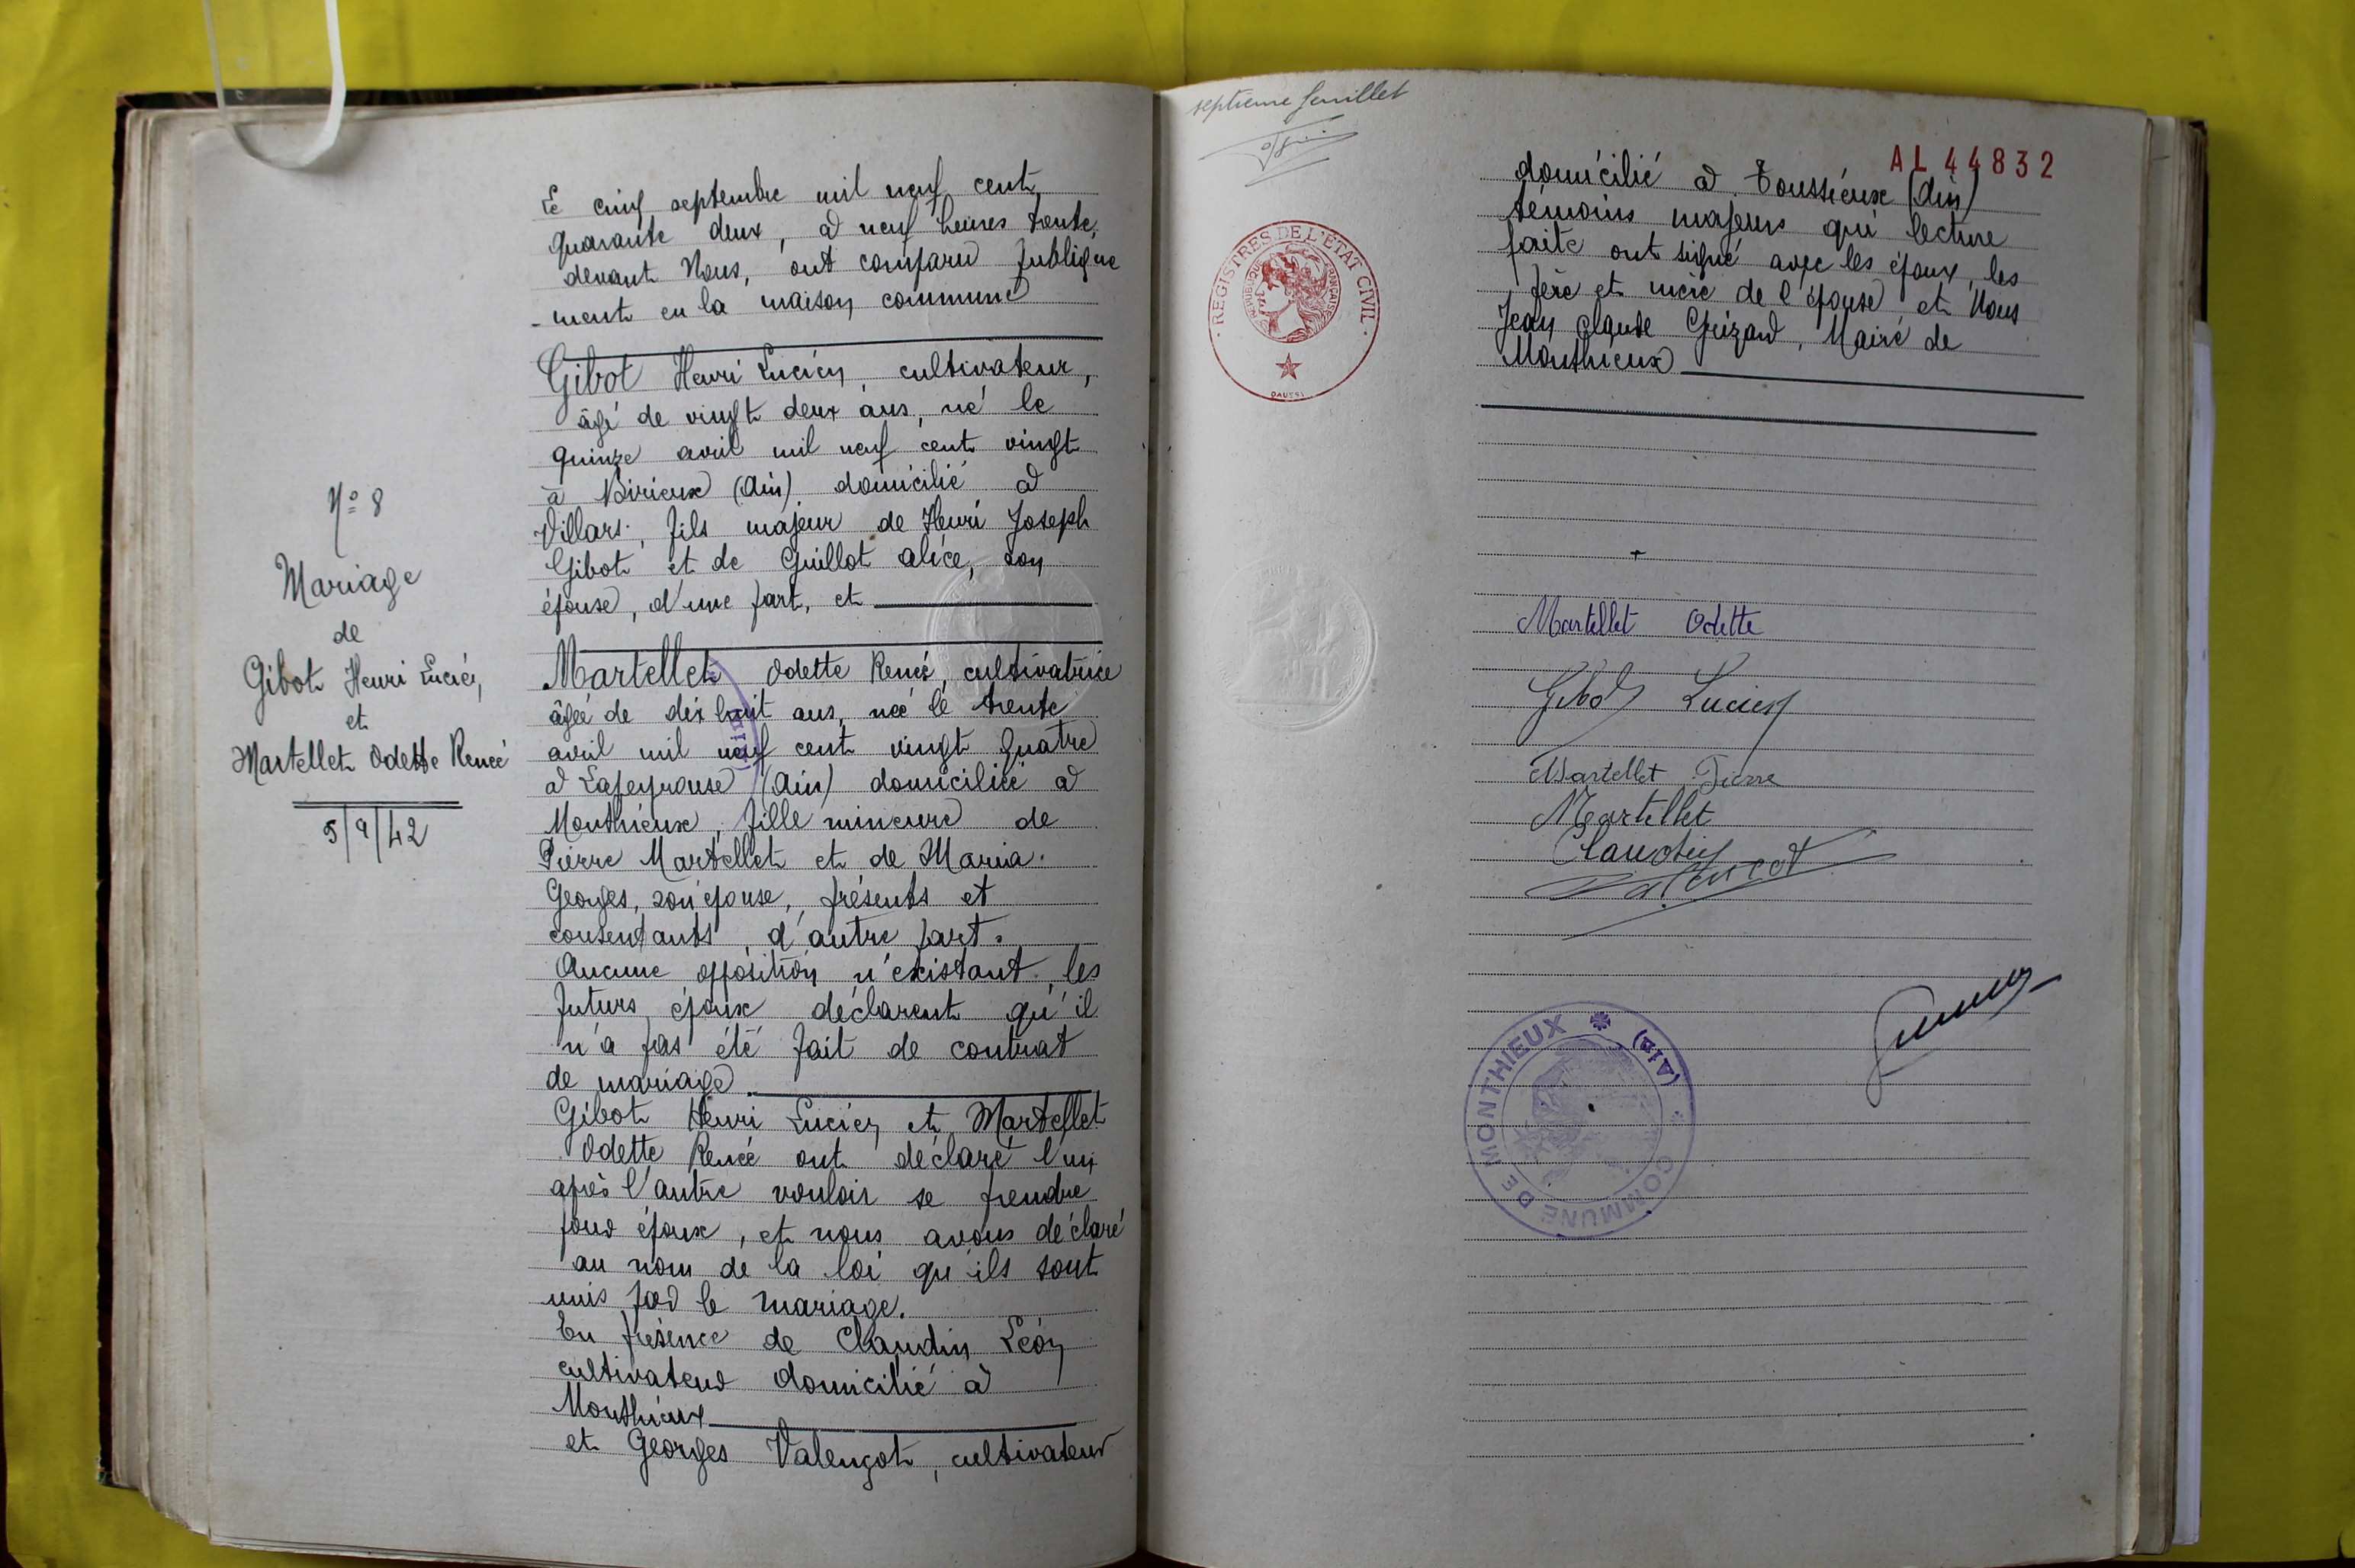 N° 8
Mariage
de
Gibot Henri Lucien
et
Martellet Odette Renée
5/9/42
Le cinq septembre mil neuf cent
quarante deux, à neuf heures trente,
devant Nous, ont comparu publique
-ment en la maison commune
Gibot Henri Lucien, cultivateur,
âgé de vingt deux ans, né le
quinze avril mil neuf cent vingt
à Birieux (Ain) domicilié à
Villars, fils majeur de Henri Joseph
Gibot et de Guillot Alice, son
épouse, d'une part, et
Martellet Odette Renée, cultivatrice
âgée de dix huit ans, née le trente
avril mil neuf cent vingt quatre
à Lapeyrouse (Ain) domiciliée à
Monthieux, fille mineure de
Pierre Martellet et de Maria
Georges, son épouse, présents et
consentants, d'autre part.
Aucune opposition n'existant, les
futurs époux déclarent qu'il
n'a pas été fait de contrat
de mariage.
Gibot Henri Lucien et Martellet
Odette Renée ont déclaré l'un
après l'autre vouloir se prendre
pour époux, et nous avons déclaré
au nom de la loi qu'ils sont
unis par le mariage.
En présence de Claudin Léon
cultivateur domicilié à
Monthieux
et Georges Valençot, cultivateur
septième feuillet
REGISTRES DE L'ETAT CIVIL
REPUBLIQUE FRANÇAISE
AL 44832
domicilié à Toussieux (Ain)
témoins majeurs qui lecture
faite ont signé avec les époux, les
père et mère de l'épouse et Nous
Jean Claude Grizard, Maire de
Monthieux
Martellet Odette
Gibot Lucien
Martellet Pierre
Martellet
Claudin
Valençot
COMMUNE DE MONTHIEUX (Ain)